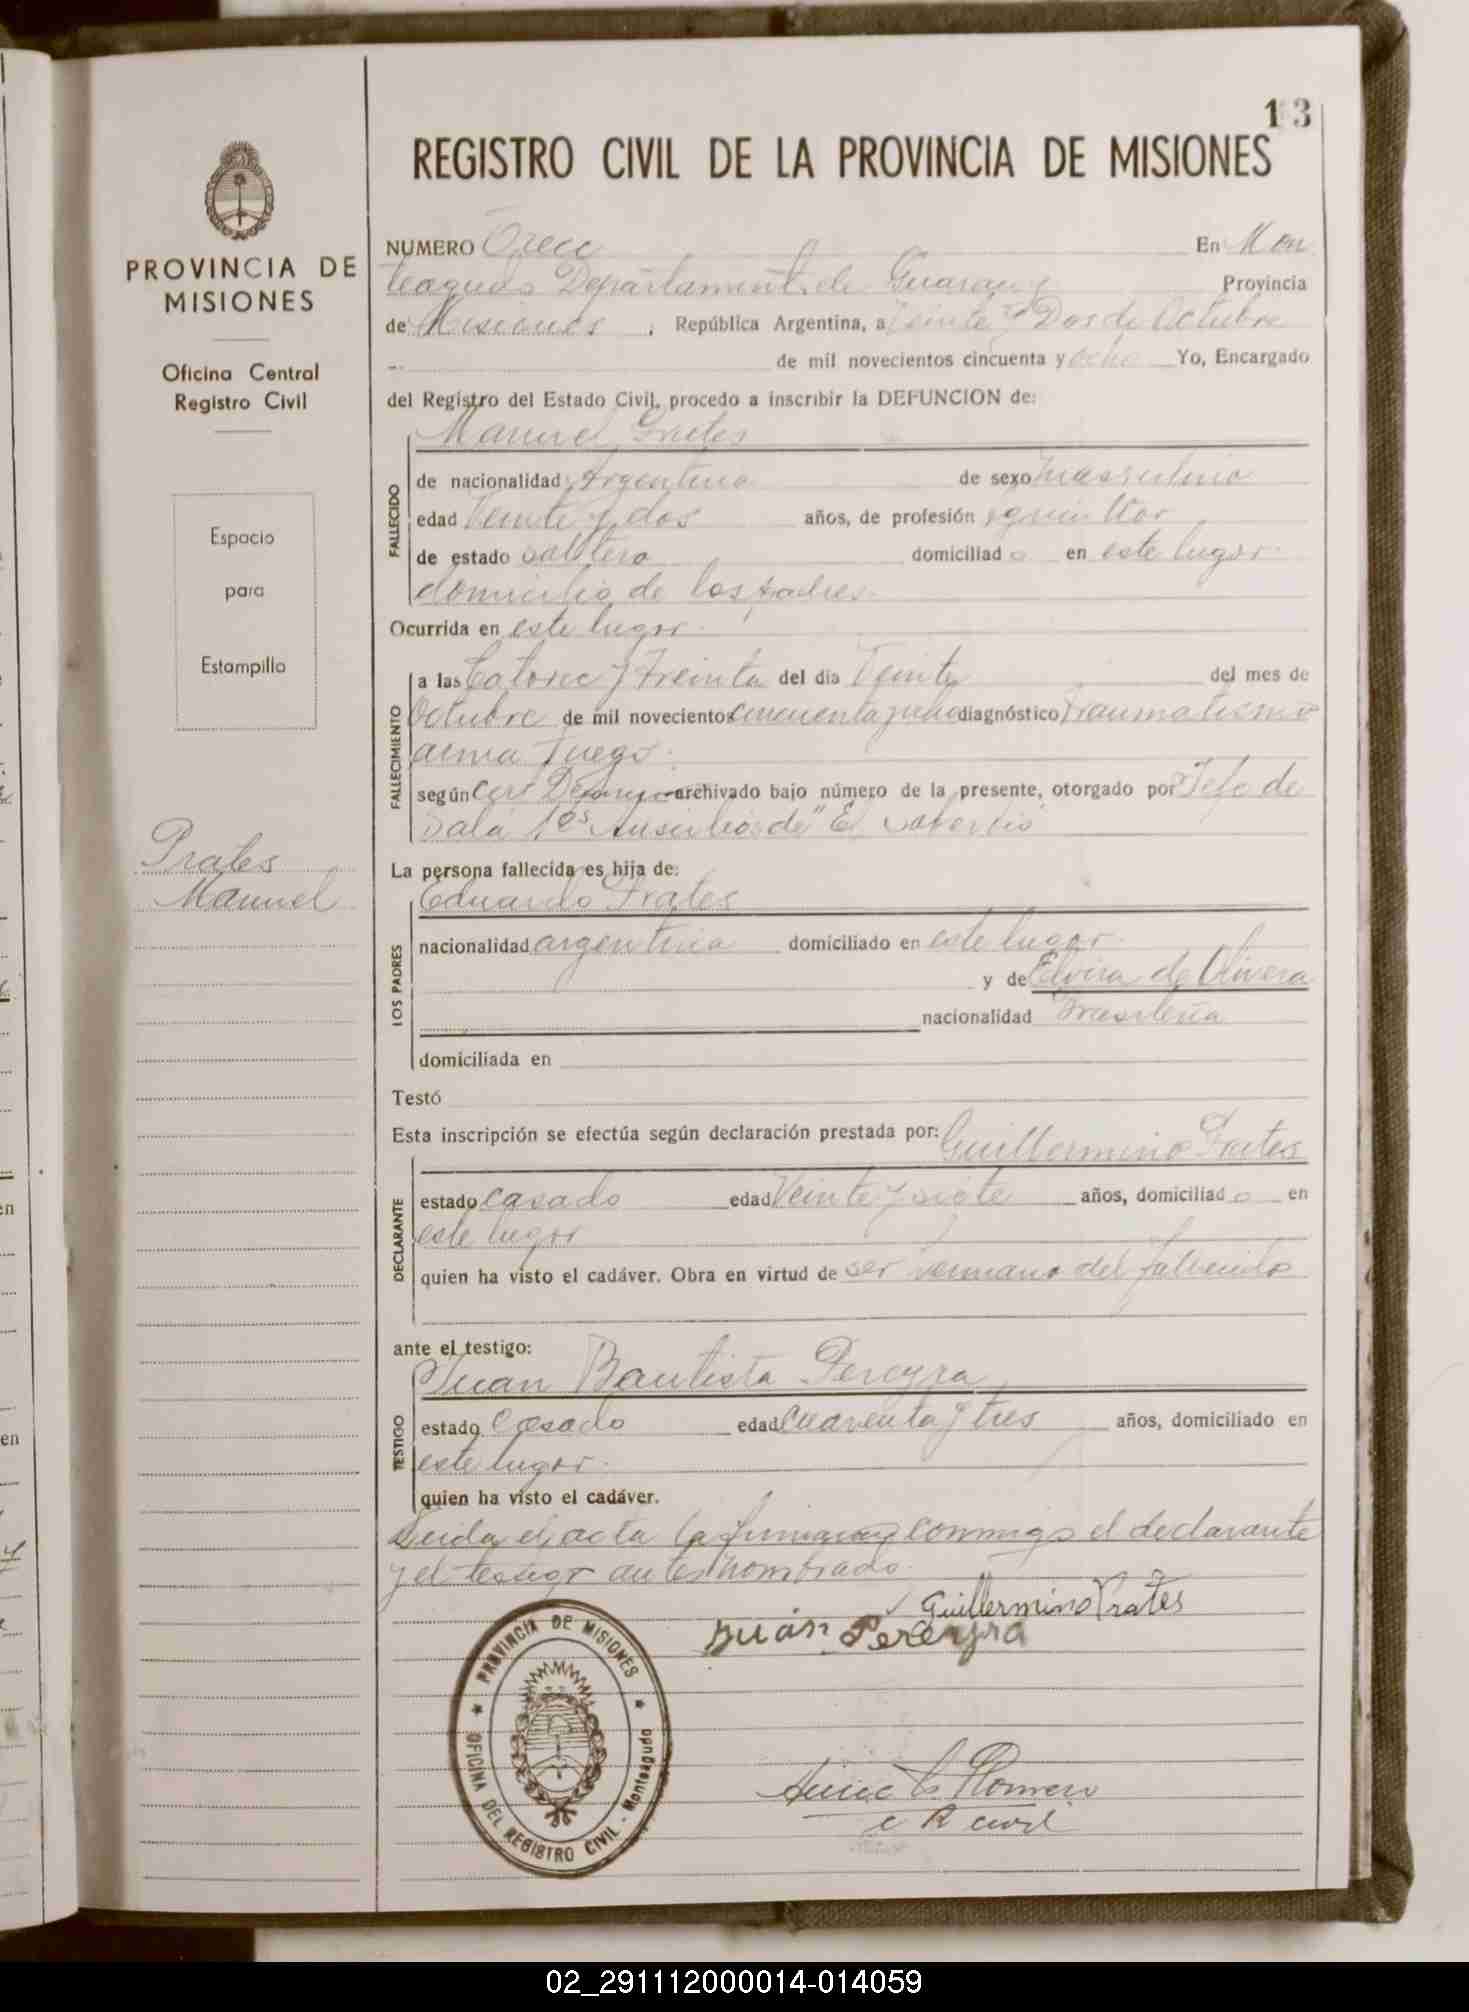 13
REGISTRO CIVIL DE LA PROVINCIA DE MISIONES
PROVINCIA DE
MISIONES
Oficina Central
Registro Civil
Espacio
para
Estampilla
Prates
Manuel
NUMERO Trece En Mon
teagudo Departamento de Guarany Provincia
de Misiones , República Argentina, a Veinte y Dos de Octubre
de mil novecientos cincuenta y ocho Yo, Encargado
del Registro del Estado Civil, procedo a inscribir la DEFUNCION de:
Manuel Prates
FALLECIDO
de nacionalidad Argentina de sexo masculino
edad Veinte y dos años, de profesión agricultor
de estado soltero domiciliad o en este lugar
domicilio de los padres.
Ocurrida en este lugar.
FALLECIMIENTO
a las Catorce y Treinta del dia Veinte del mes de
Octubre de mil novecientos cincuenta y ocho diagnóstico Traumatismo
arma Fuego.
según Cert Defunción archivado bajo número de la presente, otorgado por Jefe de
Sala 1os Auxilios de "El Soberbio"
La persona fallecida es hija de:
LOS PADRES
Eduardo Prates
nacionalidad argentina domiciliado en este lugar.
y de Elvira de Olivera
nacionalidad Brasileña
domiciliada en
Testó
Esta inscripción se efectúa según declaración prestada por: Guillermino Prates
DECLARANTE
estado casado edad Veinte y siete años, domiciliad o en
este lugar
quien ha visto el cadáver. Obra en virtud de ser hermano del fallecido
ante el testigo:
TESTIGO
Juan Bautista Pereyra
estado Casado edad Cuarenta y tres años, domiciliado en
este lugar.
quien ha visto el cadáver.
Leida el acta la firman conmigo el declarante
y el testigo antes nombrado.
Guillermino Prates
Juan Pereyra
PROVINCIA DE MISIONES
OFICINA DEL REGISTRO CIVIL - Monteagudo
Romero
e R civil
02_291112000014-014059